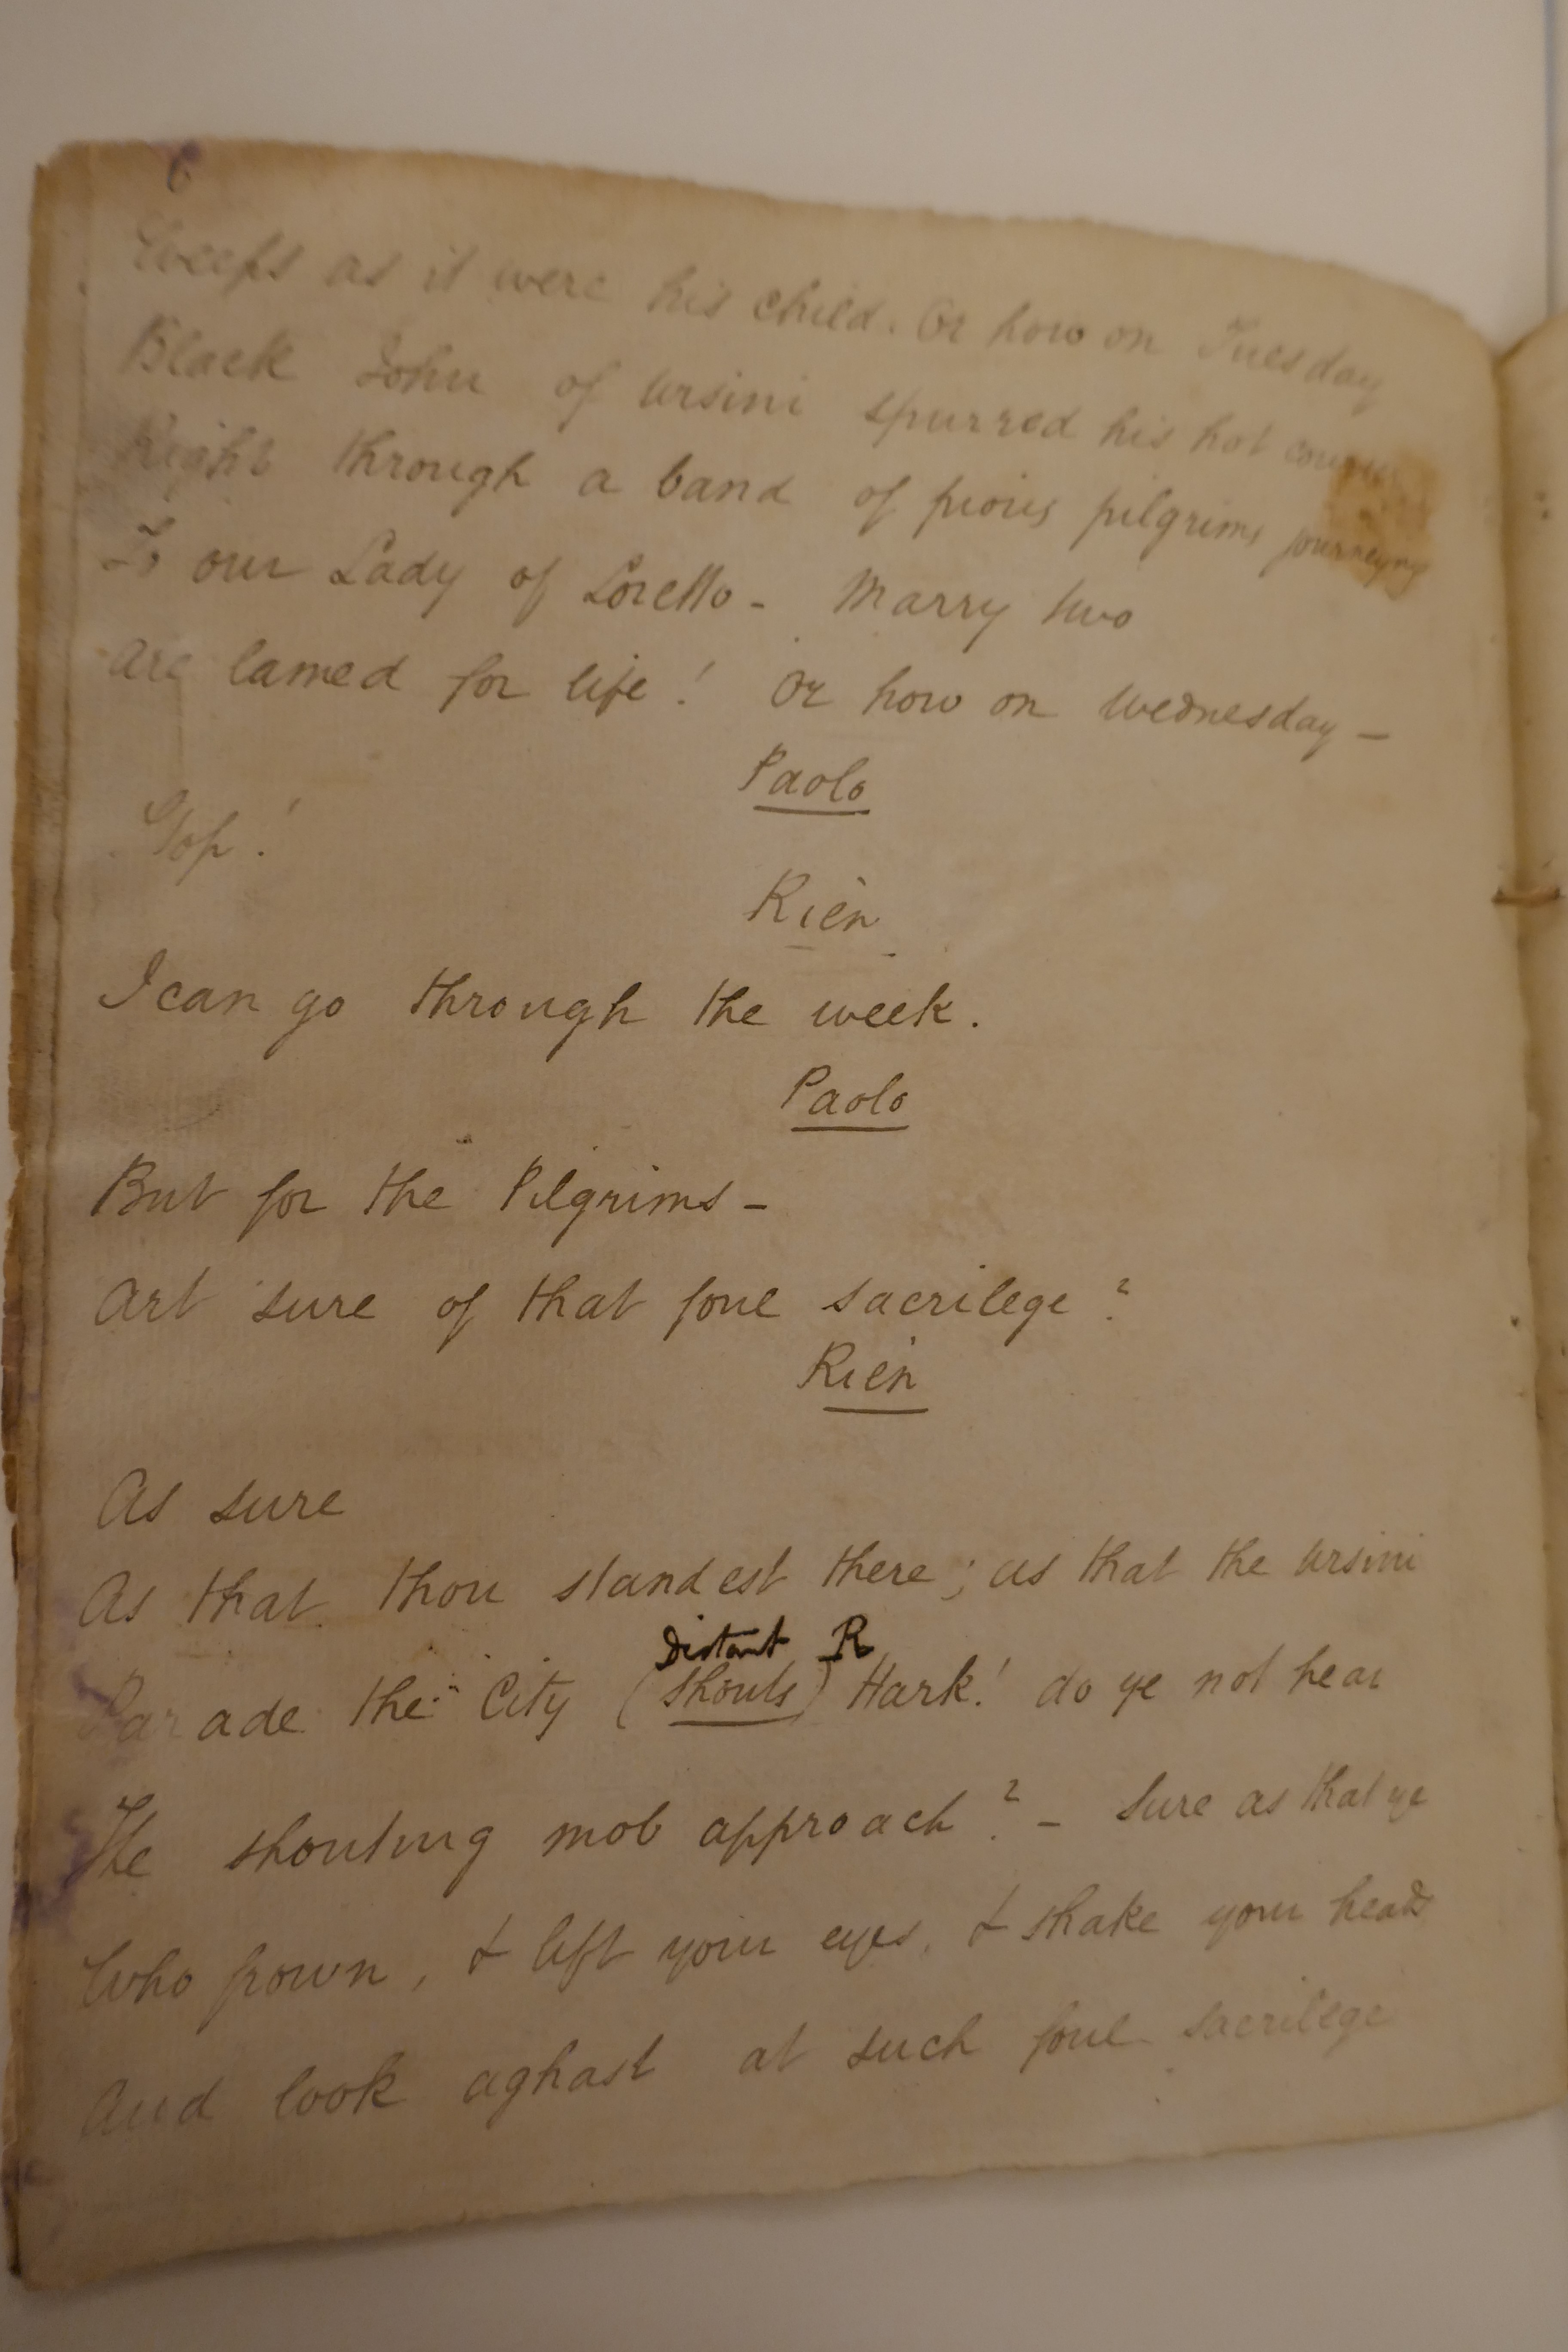 6
Weeps as it were his child. Or how on Tuesday
Black John of Ursini spurred his hot courser
Right through a band of pious pilgrims journeying
To our Lady of Loretto - Marry two
Are lamed for life! Or how on Wednesday -
Paolo
Stop!
Rien
I can go through the week.
Paolo
But for the Pilgrims -
Art sure of that foul sacrilege?
Rien
As sure
As that thou standest there; as that the Ursini
Distant R
Parade the City (Shouts) Hark! do ye not hear
The shouting mob approach? - Sure as that ye
Who frown, & lift your eyes, & shake your heads
And look aghast at such foul sacrilege